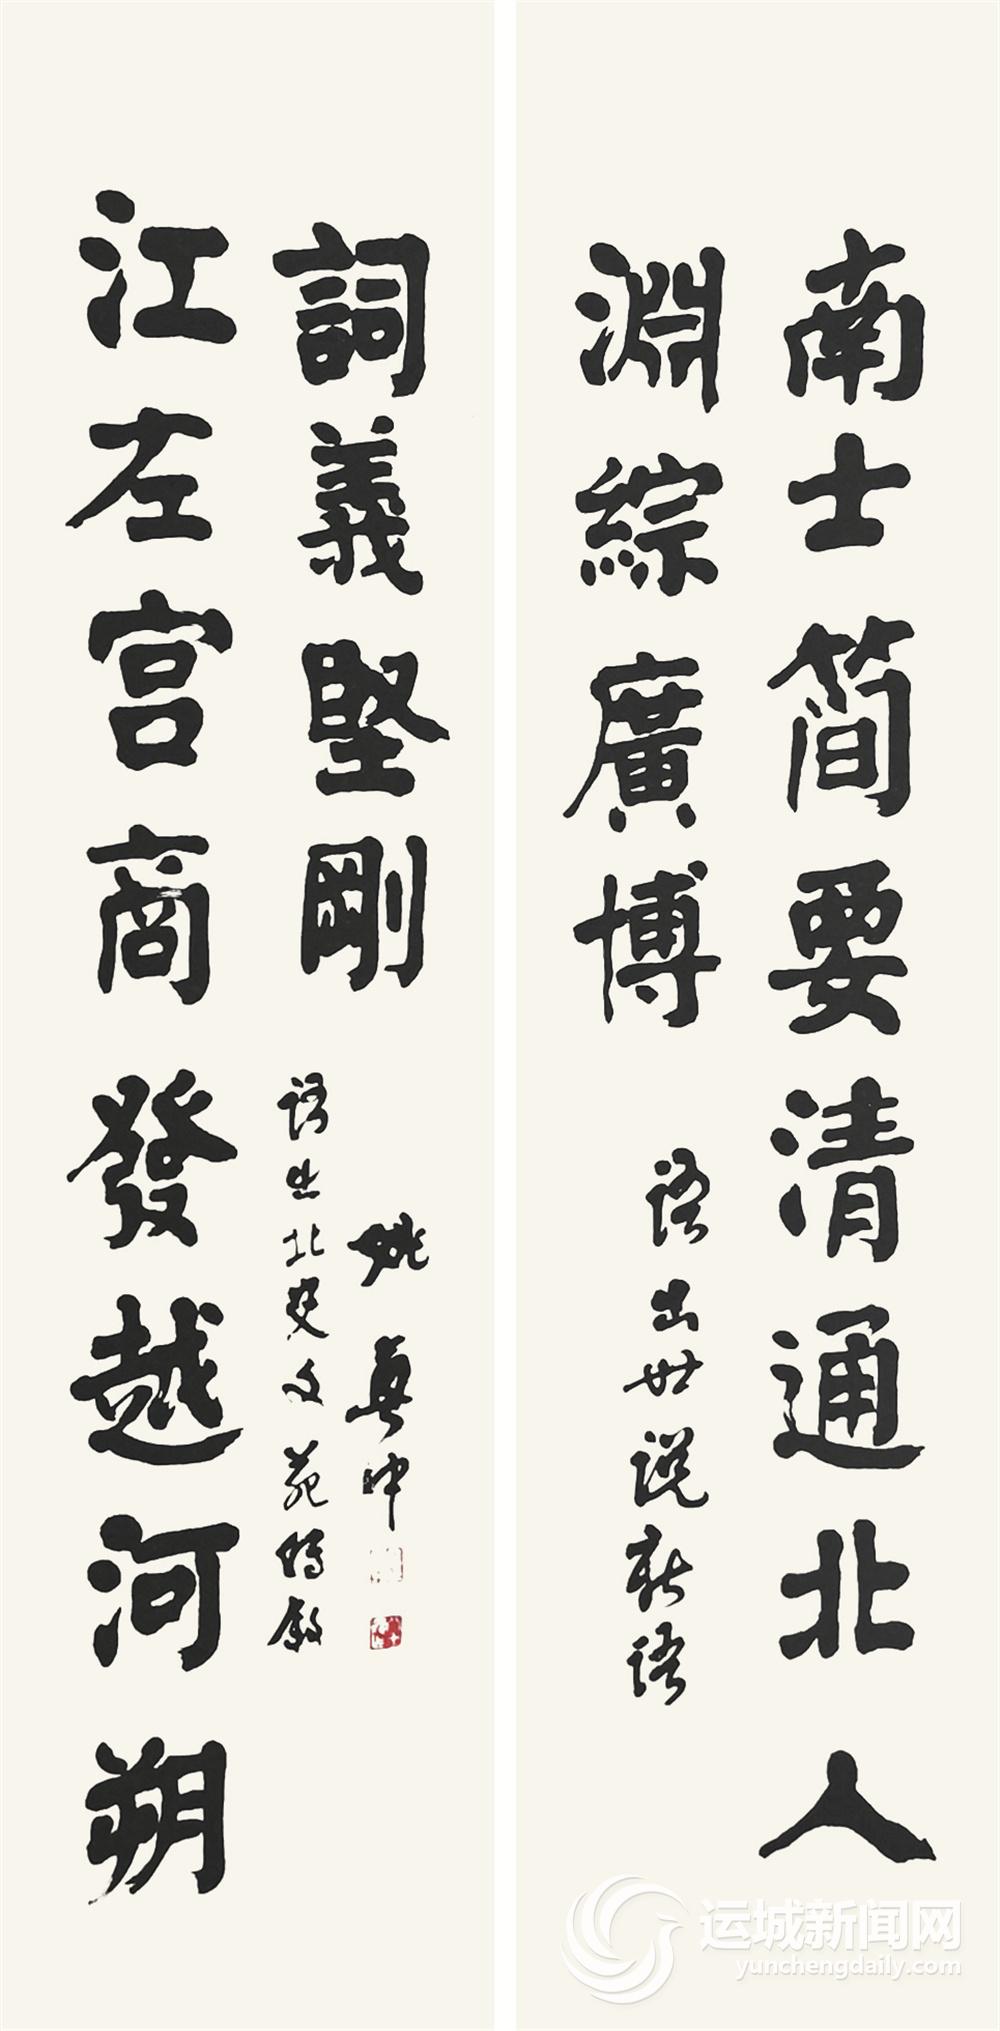 南士簡要清通北人
淵綜廣博
語出世説新語
江左宫商發越河朔
詞義堅剛
語出北史文苑傳敘
姚奠中
运城新闻网
yunchengdaily.com